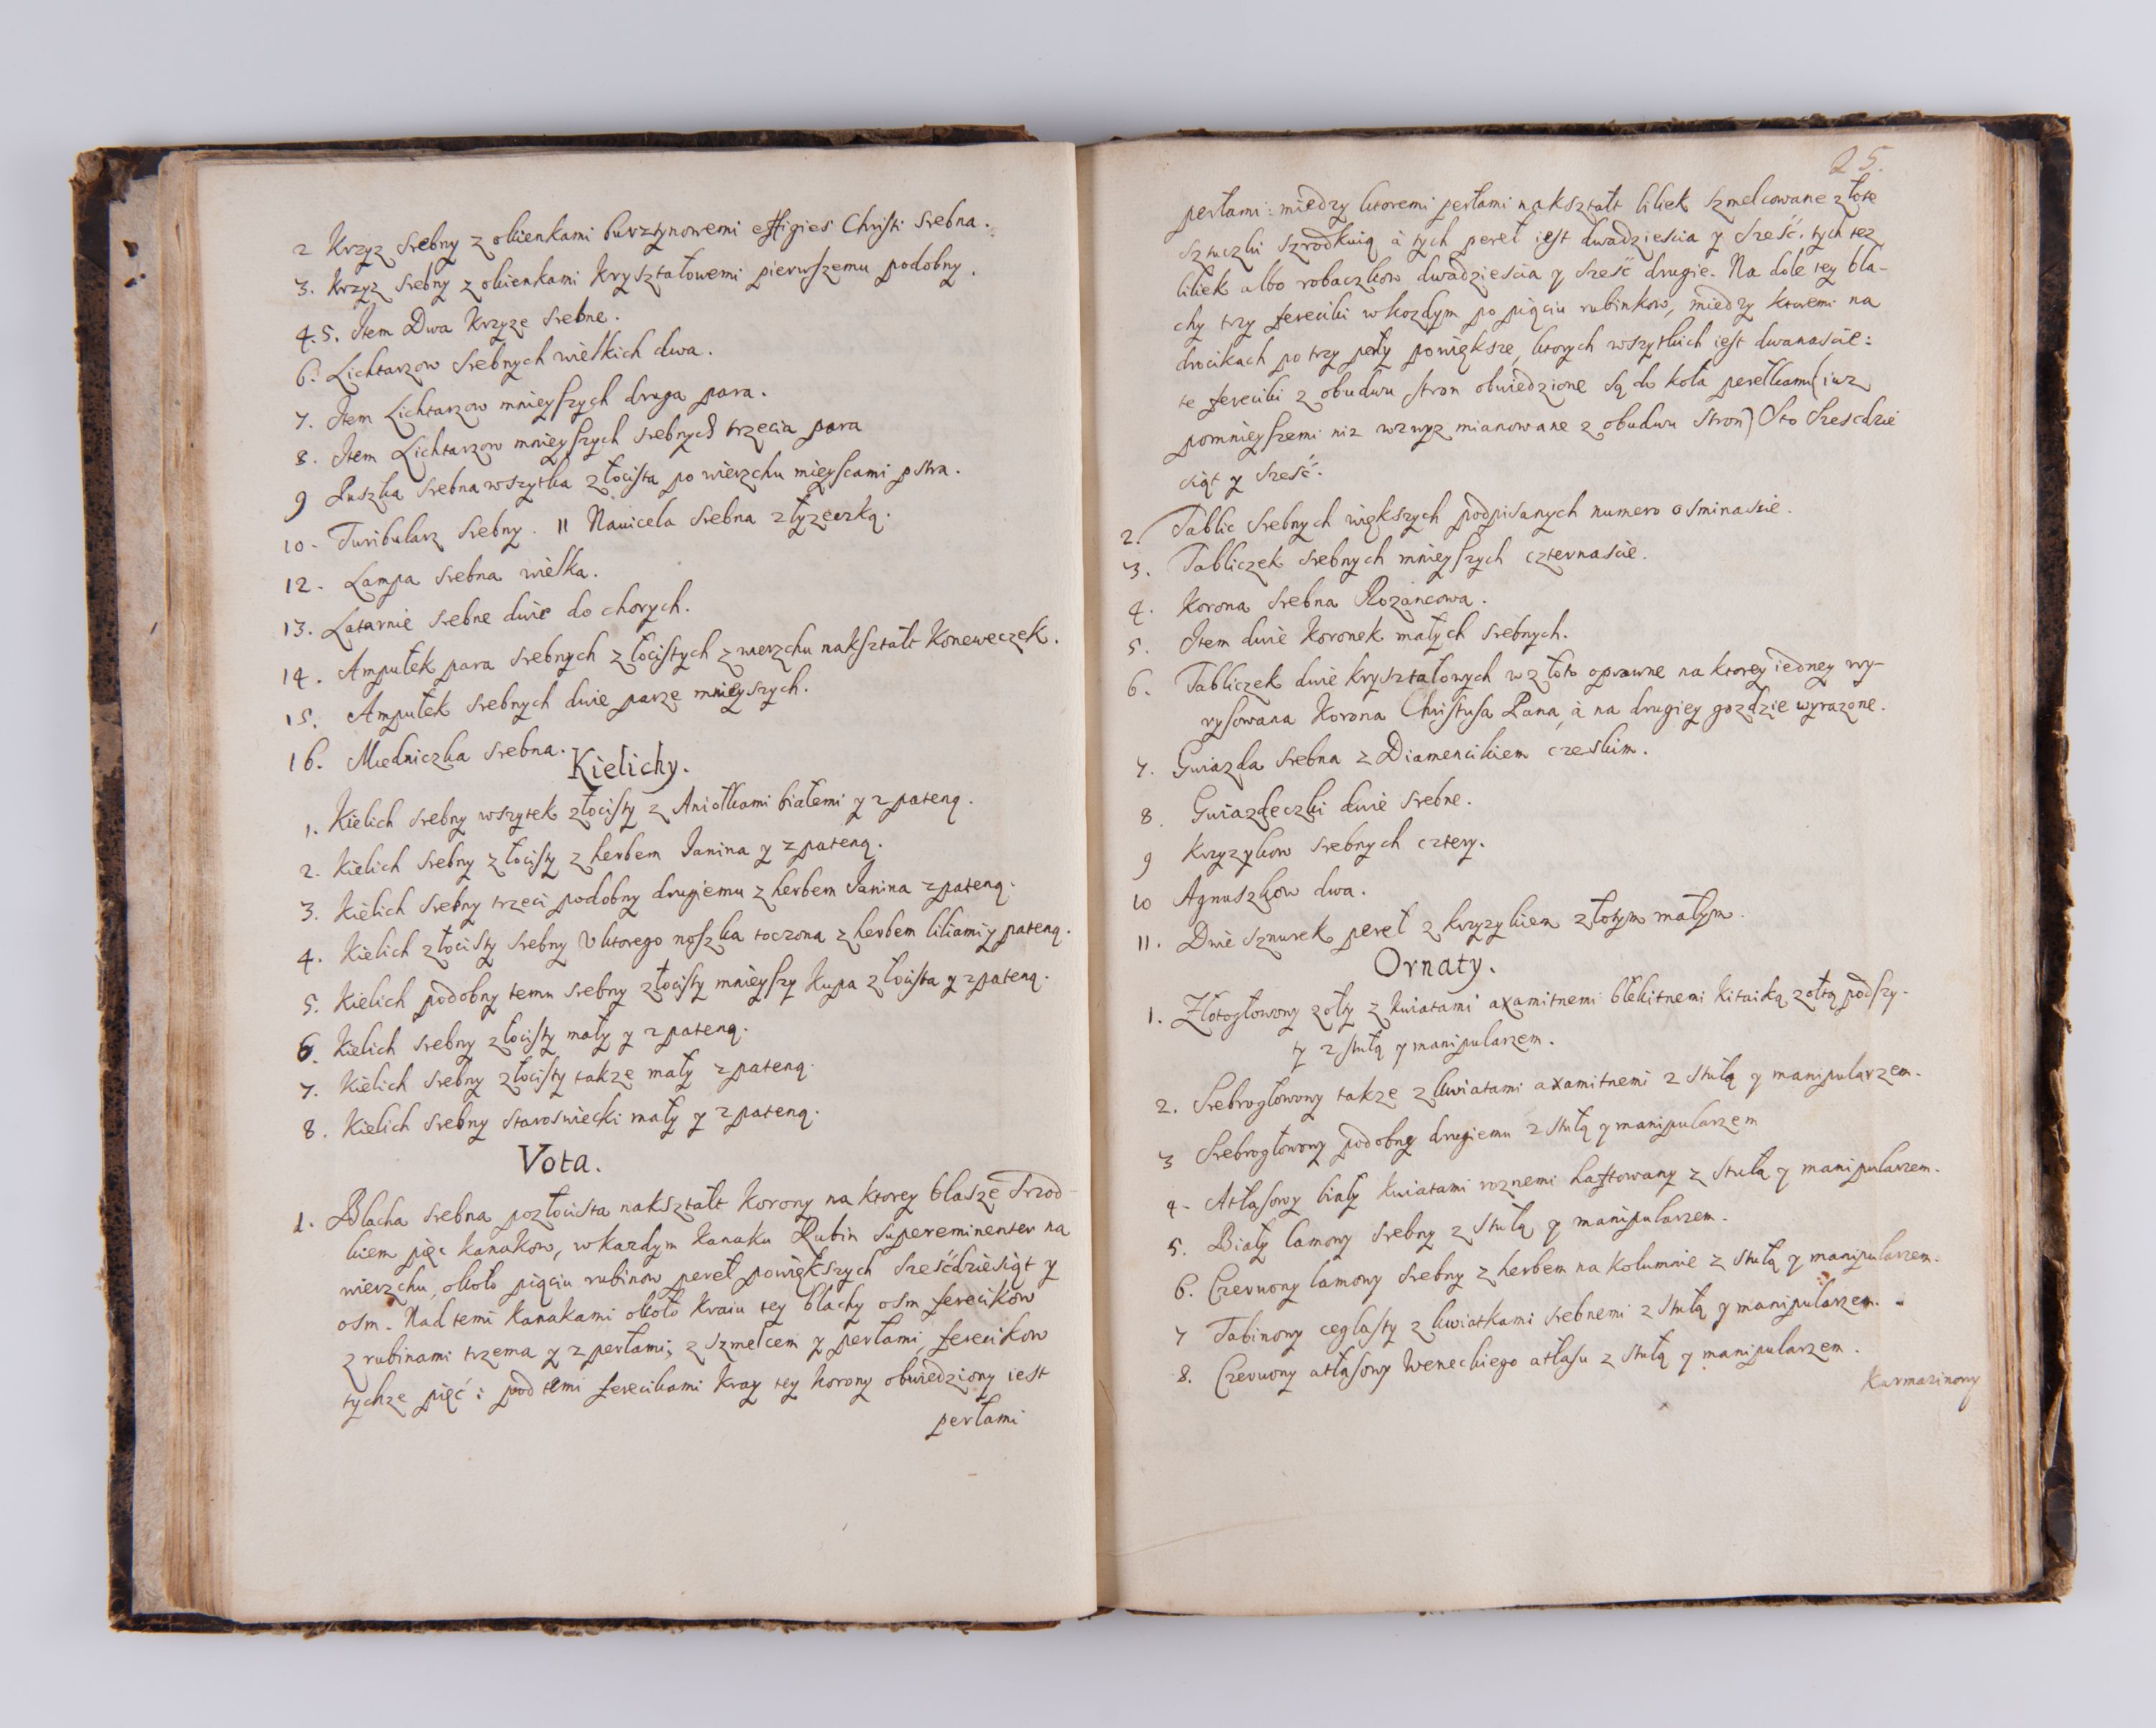 2 Krzyz srebny z okienkami bursztynowemi effigies Christi srebna.
3. Krzyz srebny z okienkami Kryształowemi pierwszemu podobny.
4. 5. Item Dwa Krzyze srebne.
6. Lichtarzow srebnych wielkich dwa.
7. Item Lichtarzow mnieyszych druga para.
8. Item Lichtarzow mnieyszych srebnych trzecia para
9 Puszka srebna wszytka złocista po wierzchu mieyscami pstra.
10. Turibularz srebny. 11 Nauicela srebna z łyzeczką.
12. Lampa srebna wielka.
13. Latarnie srebne dwie do chorych.
14. Ampułek para srebnych złocistych z wierzchu nakształt Koneweczek.
15. Ampułek srebnych dwie parze mnieyszych.
16. Miedniczka srebna.
Kielichy.
1. Kielich srebny wszytek złocisty z Aniołkami białemi y z pateną.
2. Kielich srebny złocisty z herbem Janina y z pateną.
3. Kielich srebny trzeci podobny drugiemu z herbem Janina z pateną.
4. Kielich złocisty srebny V ktorego noszka toczona z herbem liliami y pateną.
5. Kielich podobny temu srebny złocisty mnieyszy Kupa złocista y z pateną.
6. Kielich srebny złocisty mały y z pateną.
7. Kielich srebny złocisty takze mały z pateną.
8. Kielich srebny staroswiecki mały y z pateną.
Vota.
1. Blacha srebna pozłocista nakształt Korony na ktorey blasze Srzod-
kiem pięc Kanakow, w kazdym Kanaku Rubin supereminenter na
wierzchu, około piąciu rubinow pereł powiększych Sześćdziesiąt y
osm. Nad temi Kanakami około Kraiu tey blachy osm ferecikow
z rubinami trzema y z perłami, z szmelcem y perłami, ferecikow
tychze pięć: pod temi ferecikami Kray tey korony obwiedziony iest
perłami
25.
perłami: miedzy ktoremi perłami nakształt liliek szmelcowane złote
sztuczki szrodkuią à tych pereł iest dwadziescia y sześć. tych tez
liliek albo robaczkow dwadziescia y sześć drugie. Na dole tey bla-
chy trzy fereciki w kozdym po piąciu rubinkow, miedzy ktoremi na
drocikach po trzy perły powiększe, ktorych wszytkich iest dwanascie:
te fereciki z obudwu stron obwiedzione są do koła perełkami (iuz
pomnieyszemi niz wzwyz mianowane z obudwu stron) Sto Szescdzie
siąt y sześć.
2. Tablic srebnych większych podpisanych numero osminascie.
3. Tabliczek srebnych mnieyszych czternascie.
4. Korona srebna Rozancowa.
5. Item dwie Koronek małych srebnych.
6. Tabliczek dwie kryształowych w złoto oprawne na ktorey iedney wy-
rysowana Korona Christusa Pana, à na drugiey gozdzie wyrazone.
7. Gwiazda srebna z Diamencikiem czeskim.
8. Gwiazdeczki dwie srebne.
9 Krzyzykow srebnych cztery.
10 Agnuszkow dwa.
11. Dwie sznurek pereł z krzyzykiem złotym małym.
Ornaty.
1. Złotogłowowy zoły z kwiatami axamitnemi błekitnemi Kitaiką zołtą podszy-
ty z stułą y manipularzem.
2. Srebrogłowowy takze z kwiatami axamitnemi z stułą y manipularzem.
3 Srebrogłowowy podobny drugiemu z stułą y manipularzem
4. Atłasowy biały kwiatami roznemi haftowany z stułą y manipularzem.
5. Biały lamowy srebny z stułą y manipularzem.
6. Czerwony lamowy srebny z herbem na kolumnie z stułą y manipularzem.
7 Tabinowy ceglasty z kwiatkami srebnemi z stułą y manipularzem.
8. Czerwony atłasowy Weneckiego atłasu z stułą y manipularzem.
Karmazinowy